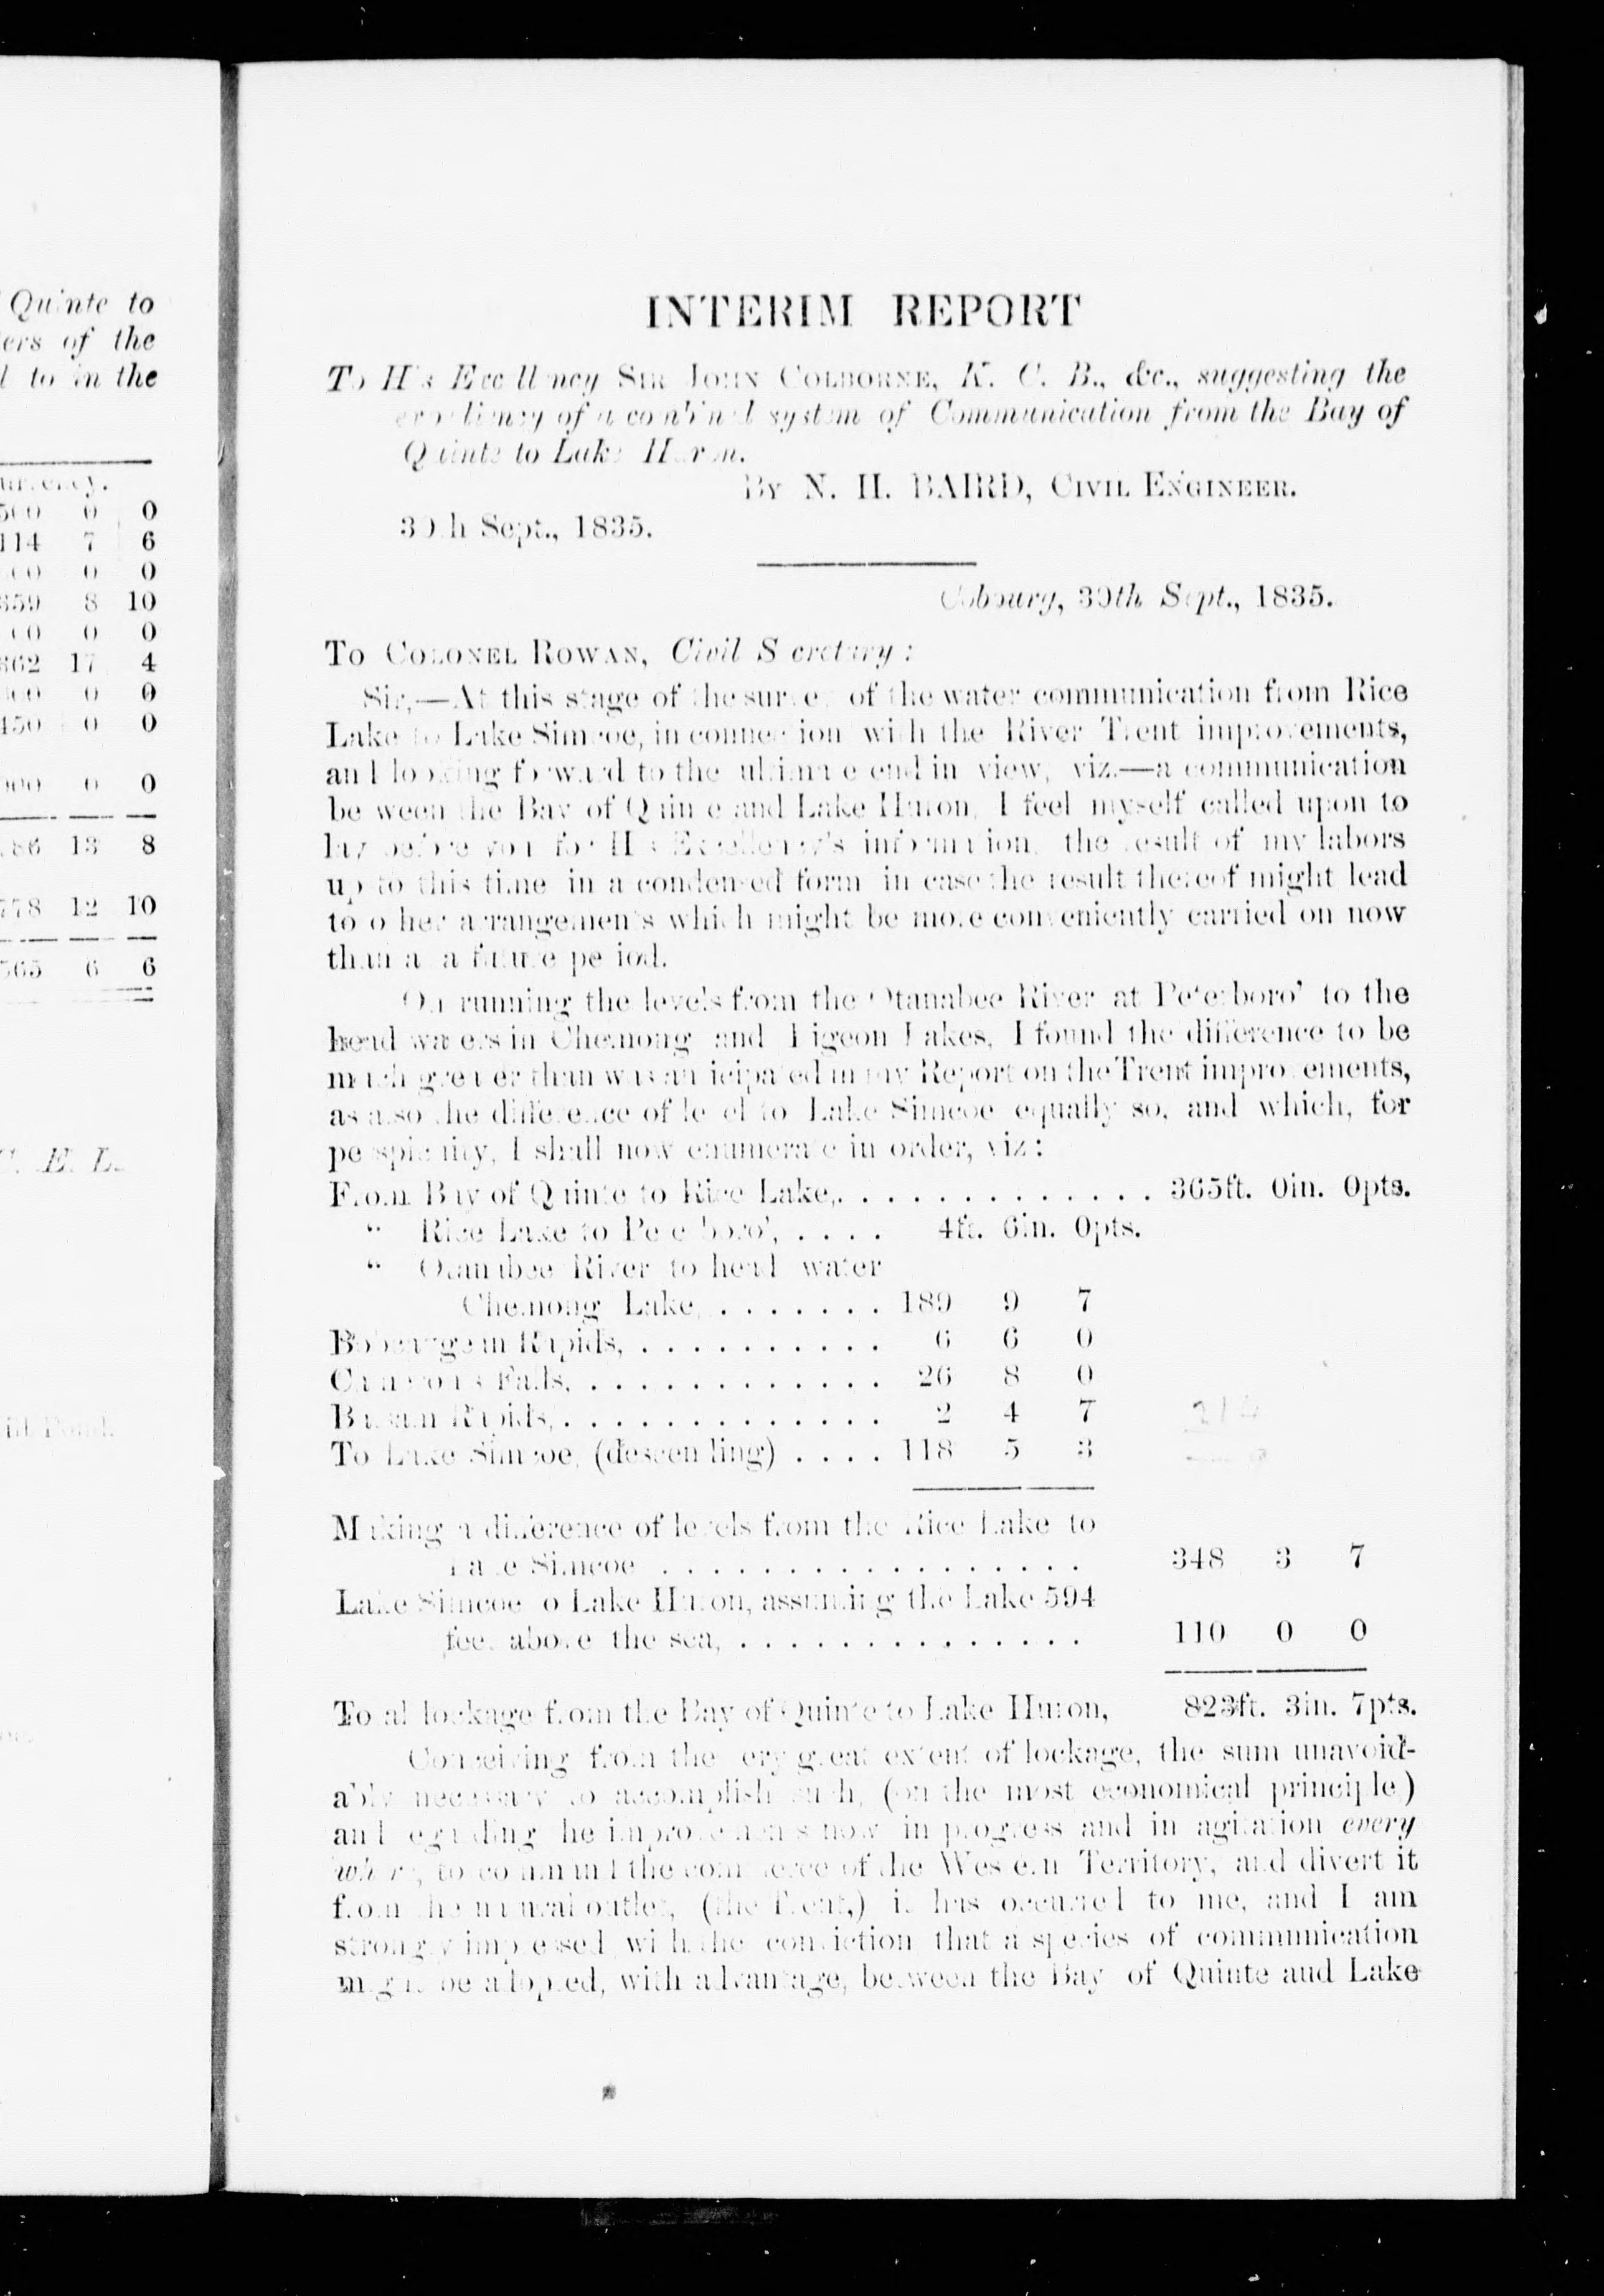 Quinte to
ers of the
to in the
urrency.
500 0 0
114 7 6
00 0 0
359 8 10
00 0 0
362 17 4
000 0 0
450 0 0
000 0 0
86 13 8
778 12 10
565 6 6
C. E. L.
INTERIM REPORT
To His Excellency SIR JOHN COLBORNE, K. C. B., &c., suggesting the
expediency of a combined system of Communication from the Bay of
Quinte to Lake Huron.
BY N. H. BAIRD, CIVIL ENGINEER.
30th Sept., 1835.
Cobourg, 30th Sept., 1835.
To COLONEL ROWAN, Civil Secretary:
Sir,—At this stage of the survey of the water communication from Rice
Lake to Lake Simcoe, in connection with the River Trent improvements,
and looking forward to the ultimate end in view, viz.—a communication
between the Bay of Quinte and Lake Huron, I feel myself called upon to
lay before you for His Excellency's information, the result of my labors
up to this time in a condensed form in case the result thereof might lead
to other arrangements which might be more conveniently carried on now
than at a future period.
On running the levels from the Otanabee River at Peterboro' to the
head waters in Chemong and Pigeon Lakes, I found the difference to be
much greater than was anticipated in my Report on the Trent improvements,
as also the difference of level to Lake Simcoe equally so, and which, for
perspicuity, I shall now enumerate in order, viz:
From Bay of Quinte to Rice Lake, . . . . . . . . . . . . . 365ft. 0in. 0pts.
" Rice Lake to Peterboro', . . . . 4ft. 6in. 0pts.
" Otanabee River to head water
Chemong Lake, . . . . . . . 189 9 7
Bobcaygean Rapids, . . . . . . . . . . 6 6 0
Cameron's Falls, . . . . . . . . . . . . 26 8 0
Balsam Rapids, . . . . . . . . . . . . . 2 4 7
To Lake Simcoe, (descending) . . . . 118 5 3
Making a difference of levels from the Rice Lake to
Lake Simcoe . . . . . . . . . . . . . . . . . 348 3 7
Lake Simcoe to Lake Huron, assuming the Lake 594
feet above the sea, . . . . . . . . . . . . . . 110 0 0
Total lockage from the Bay of Quinte to Lake Huron, 823ft. 3in. 7pts.
Conceiving from the very great extent of lockage, the sum unavoid-
ably necessary to accomplish such, (on the most economical principle,)
and regarding the improvements now in progress and in agitation every
where, to command the commerce of the Western Territory, and divert it
from the natural outlet, (the Trent,) it has occurred to me, and I am
strongly impressed with the conviction that a species of communication
might be adopted, with advantage, between the Bay of Quinte and Lake